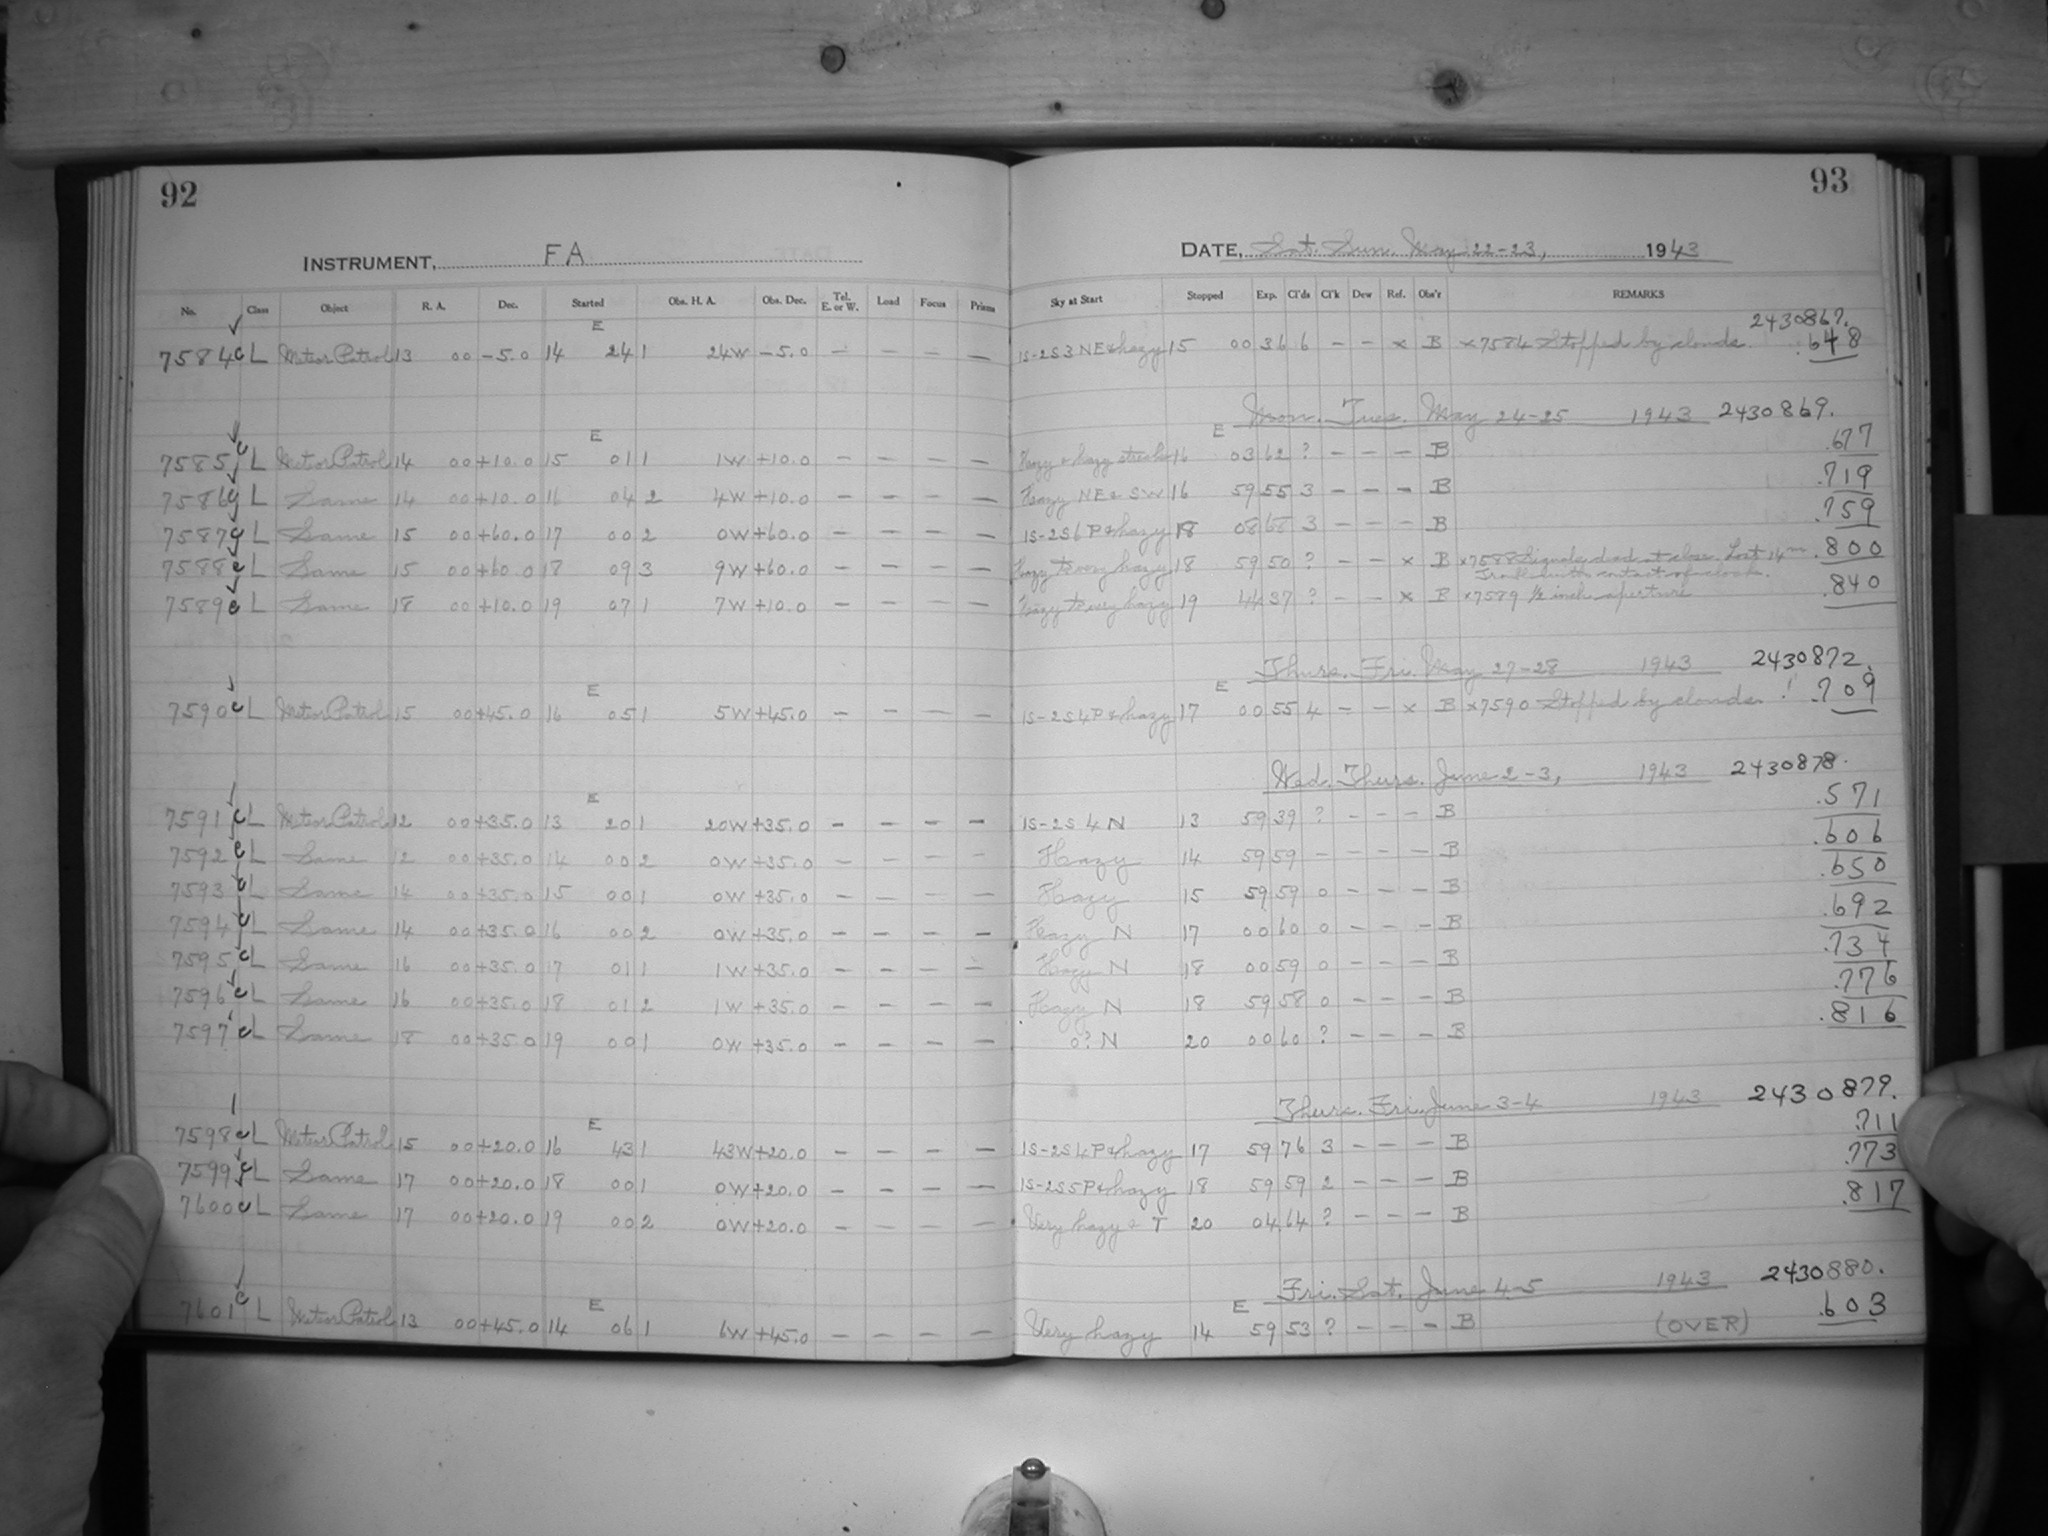 92
INSTRUMENT, FA
No. Class Object R. A. Dec. Started Obs. H. A. Obs. Dec. Tel. E. or W. Load Focus Prisms
E
7584 c L Meteor Patrol 13 00 -5.0 14 24 1 24W -5.0 - - - -
E
7585 c L Meteor Patrol 14 00 +10.0 15 01 1 1W +10.0 - - - -
7586 c L Same 14 00 +10.0 16 04 2 4W +10.0 - - - -
7587 c L Same 15 00 +60.0 17 00 2 0W +60.0 - - - -
7588 c L Same 15 00 +60.0 18 09 3 9W +60.0 - - - -
7589 c L Same 18 00 +10.0 19 07 1 7W +10.0 - - - -
E
7590 c L Meteor Patrol 15 00 +45.0 16 05 1 5W +45.0 - - - -
E
7591 c L Meteor Patrol 12 00 +35.0 13 20 1 20W +35.0 - - - -
7592 c L Same 12 00 +35.0 14 00 2 0W +35.0 - - - -
7593 c L Same 14 00 +35.0 15 00 1 0W +35.0 - - - -
7594 c L Same 14 00 +35.0 16 00 2 0W +35.0 - - - -
7595 c L Same 16 00 +35.0 17 01 1 1W +35.0 - - - -
7596 c L Same 16 00 +35.0 18 01 2 1W +35.0 - - - -
7597 c L Same 18 00 +35.0 19 00 1 0W +35.0 - - - -
E
7598 c L Meteor Patrol 15 00 +20.0 16 43 1 43W +20.0 - - - -
7599 c L Same 17 00 +20.0 18 00 1 0W +20.0 - - - -
7600 c L Same 17 00 +20.0 19 00 2 0W +20.0 - - - -
E
7601 c L Meteor Patrol 13 00 +45.0 14 06 1 6W +45.0 - - - -
93
DATE, Sat. Sun. May 22-23, 1943
Sky at Start Stopped Exp. Cl'ds Cl'k Dew Ref. Obs'r REMARKS
2430867.
1S-2S3 NE & hazy 15 00 36 6 - - x B x7584 Stopped by clouds. .648
Mon. Tues. May 24-25 1943 2430869.
E
Hazy & hazy streaks 16 03 62 ? - - - B .677
Hazy NE & SW 16 59 55 3 - - - B .719
1S-2S6 P & hazy 18 08 68 3 - - - B .759
Hazy to very hazy 18 59 50 ? - - x B x7588 Signals dead at close. Lost 14m .800
contact of clock.
Hazy to very hazy 19 44 37 ? - - x B x7589 1/2 inch aperture .840
Thurs. Fri. May 27-28 1943 2430872.
E
1S-2S4P & hazy 17 00 55 4 - - x B x7590 Stopped by clouds. .709
Wed. Thurs. June 2-3, 1943 2430878.
1S-2S 4 N 13 59 39 ? - - - B .571
Hazy 14 59 59 - - - - B .606
Hazy 15 59 59 0 - - - B .650
Hazy N 17 00 60 0 - - - B .692
Hazy N 18 00 59 0 - - - B .734
Hazy N 18 59 58 0 - - - B .776
0? N 20 00 60 ? - - - B .816
Thurs. Fri. June 3-4 1943 2430879.
1S-2S4P & hazy 17 59 76 3 - - - B .711
1S-2S5P & hazy 18 59 59 2 - - - B .773
Very hazy & T 20 04 64 ? - - - B .817
Fri. Sat. June 4-5 1943 2430880.
E
Very hazy 14 59 53 ? - - - B (OVER) .603